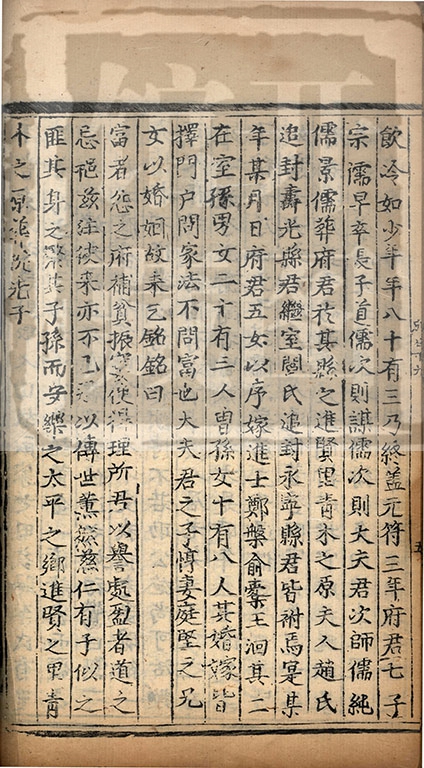 飲冷如少年年八十有三乃終蓋元符三年府君七子
宗儒早卒長子道儒次則謀儒次則大夫君次師儒純
儒景儒葬府君於其縣之進賢里青木之原夫人趙氏
追封壽光縣君繼室閻氏追封永寧縣君皆祔焉寔某
年某月日府君五女以序嫁進士鄭槃俞橐王洄其二
在室孫男女二十有三人曽孫女十有八人其婚嫁皆
擇門户問家法不問富也大夫君之子惇妻庭堅之兄
女以婚姻故来乞銘銘曰
富者怨之府補貧振窶使得理所君以譽處盈者道之
忌挹玆注彼来亦不已以傳世薫然慈仁有子似之
匪其身之榮其子孫而安樂之太平之鄉進賢之里青
木之